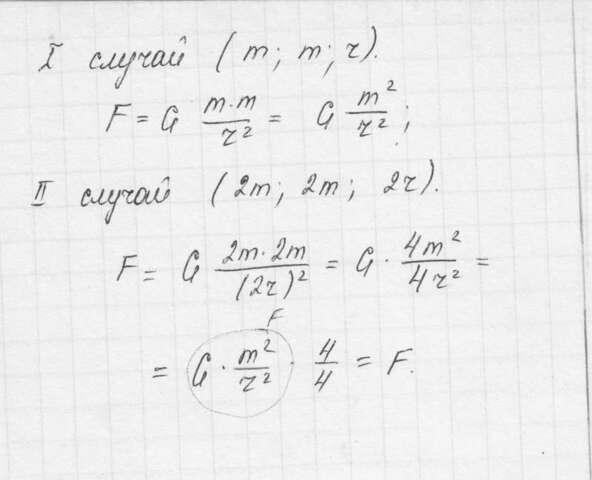 I случай (m; m; r).
F = G m·m/r² = G m²/r²;
II случай (2m; 2m; 2r).
F = G 2m·2m/(2r)² = G · 4m²/4r² =
F
= G · m²/r² · 4/4 = F.